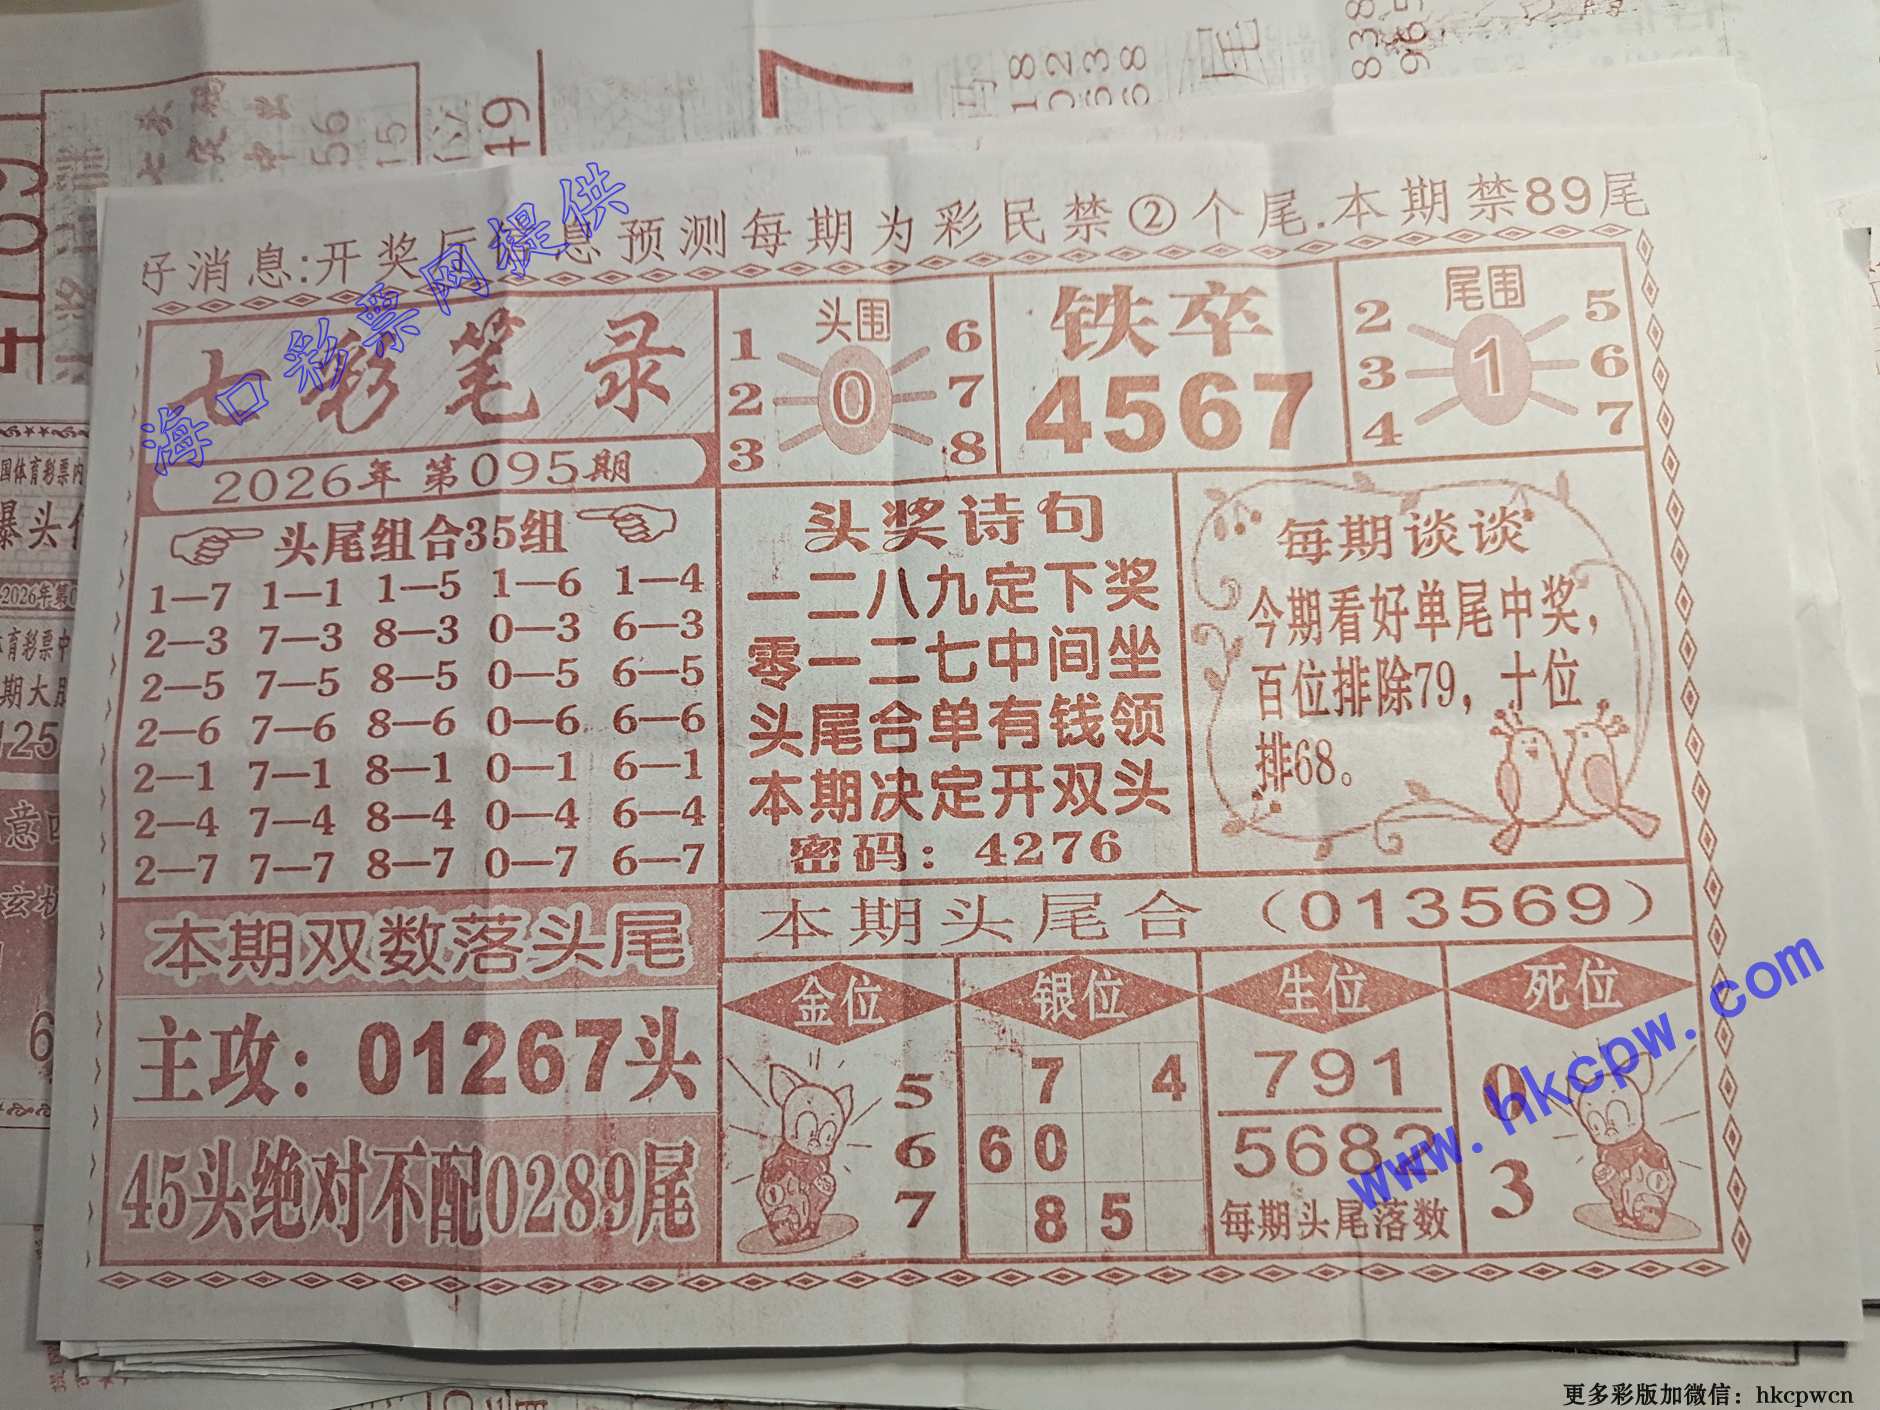 好消息:开奖后信息预测每期为彩民禁②个尾.本期禁89尾
七彩笔录
2026年 第095期
头围
1 6
2 0 7
3 8
铁卒
4567
尾围
2 5
3 1 6
4 7
头尾组合35组
1—7 1—1 1—5 1—6 1—4
2—3 7—3 8—3 0—3 6—3
2—5 7—5 8—5 0—5 6—5
2—6 7—6 8—6 0—6 6—6
2—1 7—1 8—1 0—1 6—1
2—4 7—4 8—4 0—4 6—4
2—7 7—7 8—7 0—7 6—7
头奖诗句
一二八九定下奖
零一二七中间坐
头尾合单有钱领
本期决定开双头
密码: 4276
每期谈谈
今期看好单尾中奖,
百位排除79, 十位
排68。
本期双数落头尾
主攻: 01267头
45头绝对不配0289尾
本期头尾合 (013569)
金位
5
6
7
银位
7 4
60
85
生位
791
5682
每期头尾落数
死位
0
3
海口彩票网提供
www.hkcpw.com
更多彩版加微信: hkcpwcn